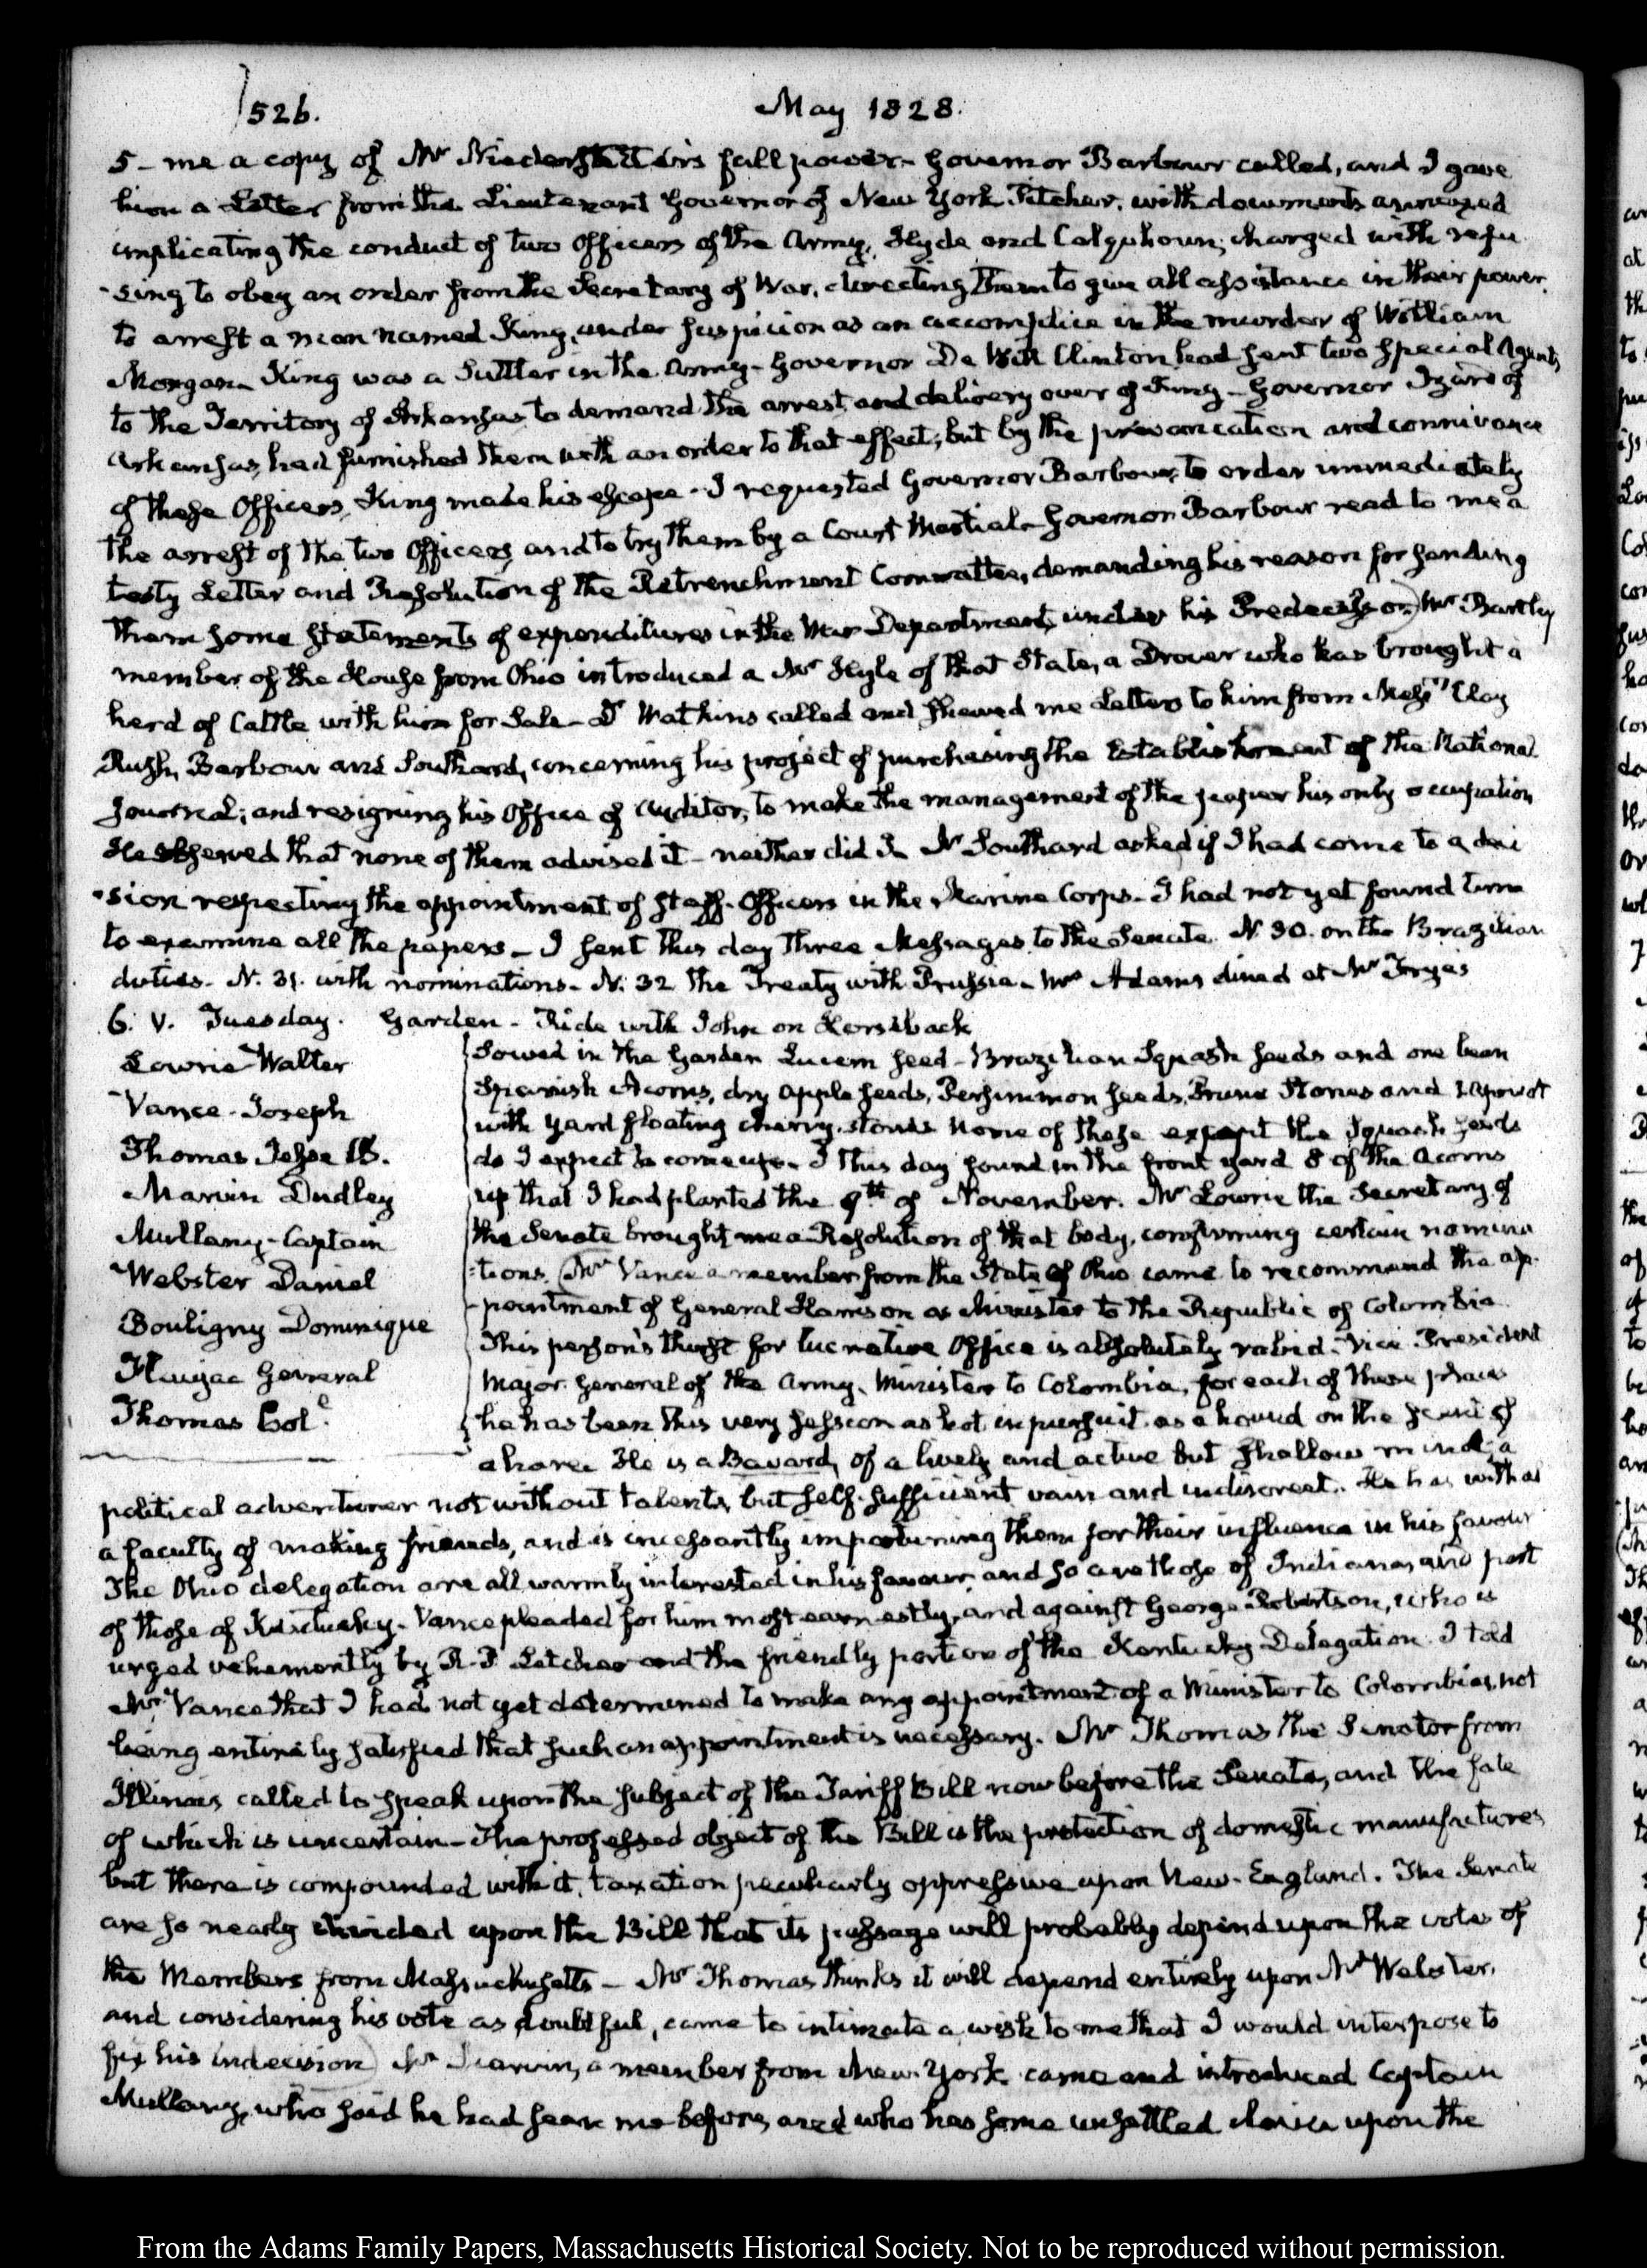 526.
May 1828.
5 – me a copy of Mr Niederstetter's full power – Governor Barbour called, and I gave
him a Letter from the Lieutenant Governor of New York Pitcher, with documents annexed
implicating the conduct of two Officers of the Army, Hyde and Colquhoun, charged with refu
-sing to obey an order from the Secretary of War, directing them to give all assistance in their power
to arrest a man named King, under suspicion as an accomplice in the murder of William
Morgan – King was a Sutler in the Army – Governor De Witt Clinton had sent two special Agents
to the Territory of Arkansas to demand the arrest and delivery over of King – Governor Izard of
Arkansas, had furnished them with an order to that effect; but by the prevarication and connivance
of these Officers, King made his escape – I requested Governor Barbour, to order immediately
the arrest of the two Officers, and to try them by a Court Martial – Governor Barbour read to me a
testy Letter and Resolution of the Retrenchment Committee, demanding his reason for sending
them some statements of expenditures in the War Department, under his Predecessor) Mr Bartley
member of the House from Ohio introduced a Mr Hyle of that State, a Drover who has brought a
herd of Cattle with him for Sale – Dr Watkins called and shewed me Letters to him from Messrs Clay
Rush, Barbour and Southard, concerning his project of purchasing the Establishment of the National
Journal; and resigning his Office of Auditor, to make the management of the paper his only occupation
He observed that none of them advised it – neither did I – Mr Southard asked if I had come to a deci
-sion respecting the appointment of Staff-Officers in the Marine Corps – I had not yet found time
to examine all the papers – I sent this day three Messages to the Senate. N. 30. on the Brazilian
duties – N. 31. with nominations – N. 32 the Treaty with Prussia – Mrs Adams dined at Mr Frye's
6. V. Tuesday. Garden – Ride with John on Horseback
Lowrie Walter
Vance – Joseph
Thomas Jesse B.
Marvin Dudley
Mullany – Captain
Webster Daniel
Bouligny Dominique
General
Thomas Col.
Sowed in the Garden Lucern seed – Brazilian Squash seeds and one bean
Spanish Acorns, dry apple seeds, Persimmon seeds, Prune Stones and 1 apricot
with yard floating cherry stones none of these except the Squash seeds
do I expect to come up – I this day found in the front yard 8 of the acorns
up that I had planted the 9th of November. Mr Lowrie the Secretary of
the Senate brought me a Resolution of that body, confirming certain nomina
-tions. (Mr Vance a member from the State of Ohio came to recommend the ap-
-pointment of General Harrison as Minister to the Republic of Colombia
This person's thirst for lucrative Office is absolutely rabid – Vice President
Major General of the Army, Minister to Colombia, for each of these places
he has been this very Session as hot in pursuit as a hound on the scent of
a hare. He is a Bavard, of a lively and active but shallow mind, a
political adventurer not without talents, but self-sufficient vain and indiscreet. He has withal
a faculty of making friends, and is incessantly importuning them for their influence in his favour
The Ohio delegation are all warmly interested in his favour, and so are those of Indiana, and part
of those of Kentucky – Vance pleaded for him most earnestly, and against George Robertson, who is
urged vehemently by R. P. Letcher and the friendly portion of the Kentucky Delegation. I told
Mr Vance that I had not yet determined to make any appointment of a Minister to Colombia, not
being entirely satisfied that such an appointment is necessary. Mr Thomas the Senator from
Illinois called to speak upon the subject of the Tariff Bill now before the Senate, and the fate
of which is uncertain – The professed object of the Bill is the protection of domestic manufactures
but there is compounded with it, taxation peculiarly oppressive upon New-England. The Senate
are so nearly divided upon the Bill that its passage will probably depend upon the votes of
the Members from Massachusetts – Mr Thomas thinks it will depend entirely upon Mr Webster,
and considering his vote as doubtful, came to intimate a wish to me that I would interpose to
fix his indecision) Mr Marvin, a member from New York came and introduced Captain
Mullany, who said he had seen me before, and who has some unsettled claim upon the
From the Adams Family Papers, Massachusetts Historical Society. Not to be reproduced without permission.